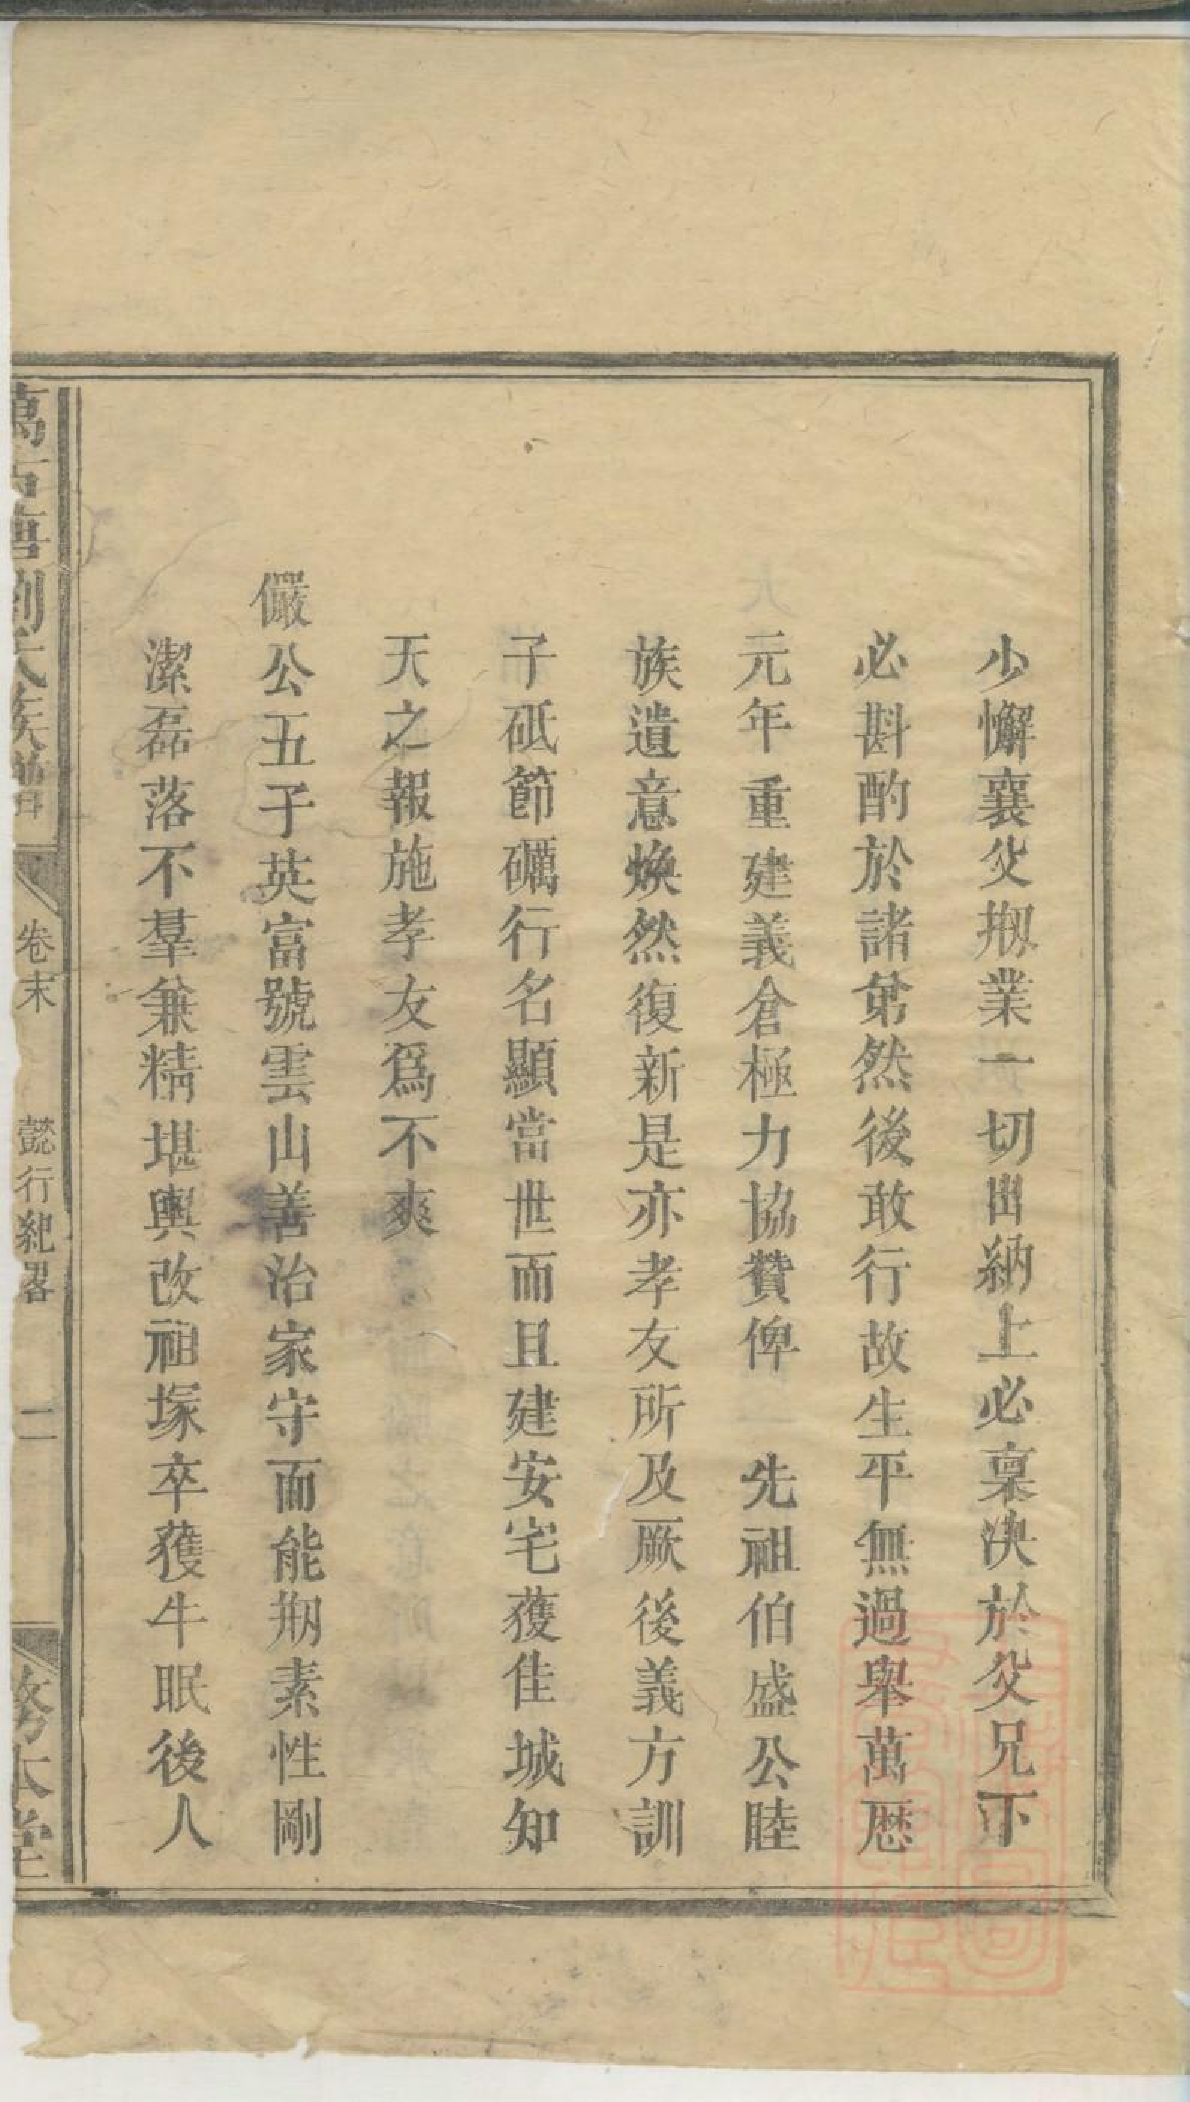 少懈襄父刱業一切出納上必稟決於父兄下
必斟酌於諸弟然後敢行故生平無過舉萬厯
元年重建義倉極力協贊俾　先祖伯盛公睦
族遺意煥然復新是亦孝友所及厥後義方訓
子砥節礪行名顯當世而且建安宅獲佳城知
天之報施孝友爲不爽
儼公五子英富號雲山善治家守而能刱素性剛
潔磊落不羣兼精堪輿改祖塚卒獲牛眠後人
萬古唐劉氏族譜
卷末
懿行紀畧
二
務本堂